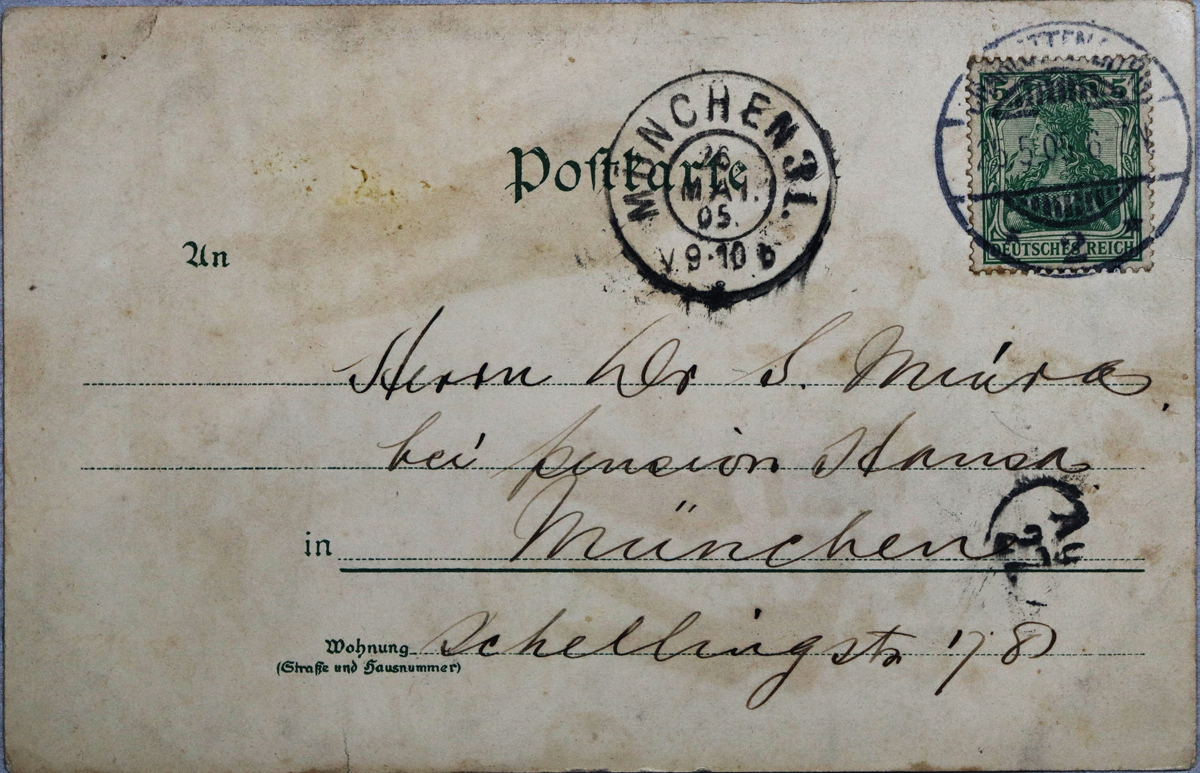 Postkarte
MÜNCHEN 31.
26
MAI.
05.
V 9-10 b
5 5
DEUTSCHES REICH
2
An
Herrn Dr S. Miúra,
bei pension Hansa
in München
Wohnung Schellingstr
(Straße und Hausnummer)